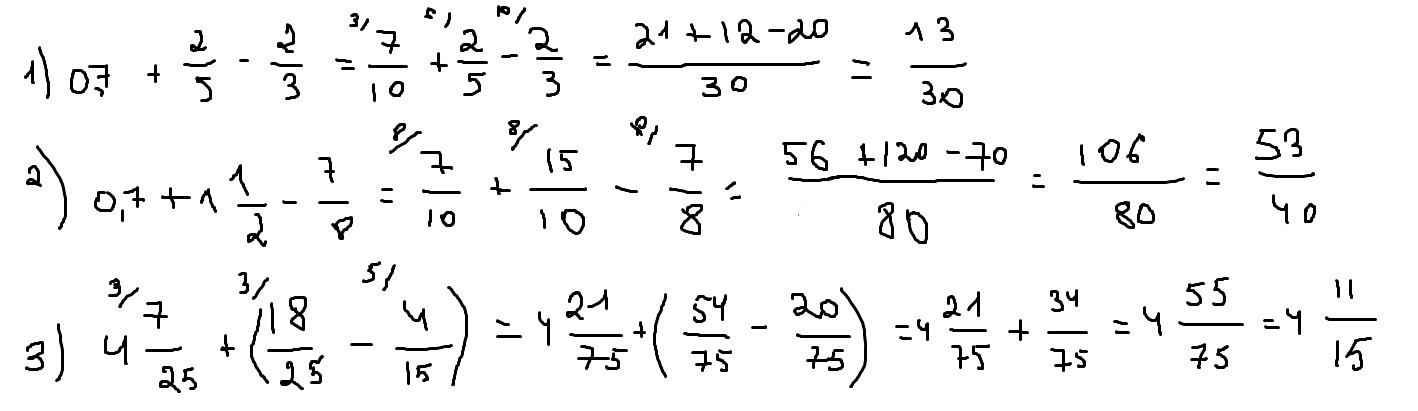 1) 0,7 + 2/5 - 2/3 = 3/ 7/10 + 5/ 2/5 - 10/ 2/3 = (21+12-20)/30 = 13/30
2) 0,7 + 1 1/2 - 7/8 = 8/ 7/10 + 8/ 15/10 - 7/8 = (56+120-70)/80 = 106/80 = 53/40
3) 3/ 4 7/25 + (3/ 18/25 - 5/ 4/15) = 4 21/75 + (54/75 - 20/75) = 4 21/75 + 34/75 = 4 55/75 = 4 11/15